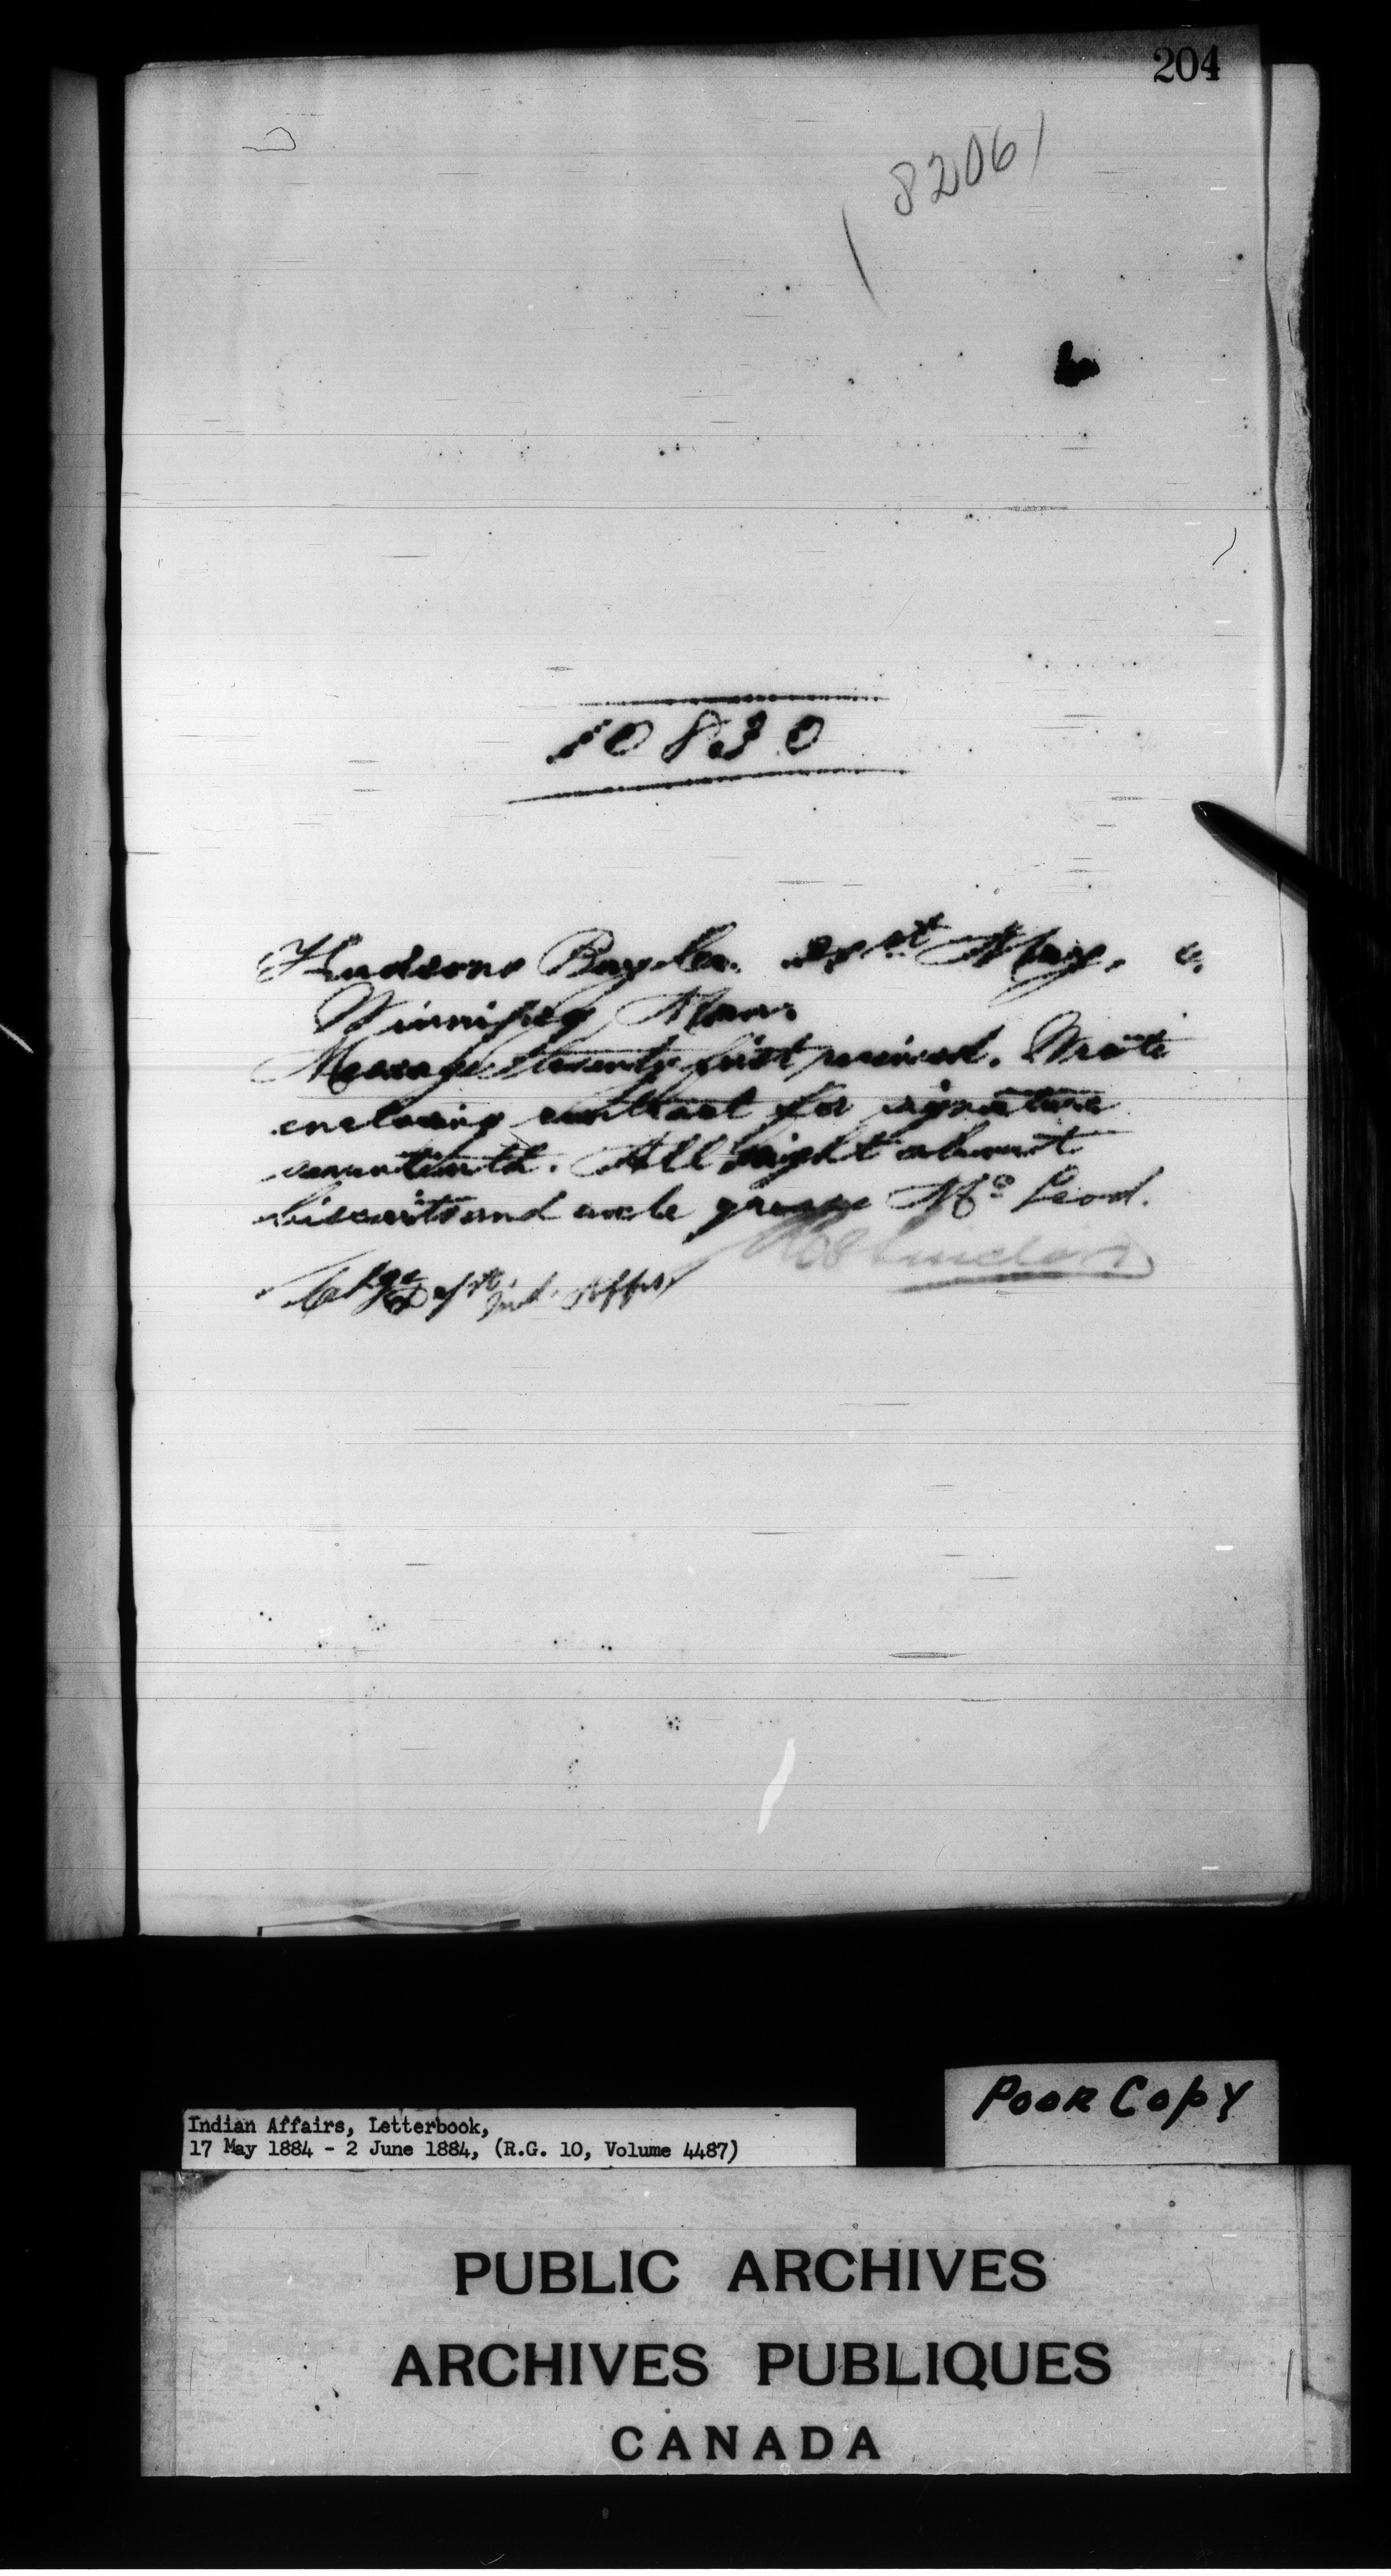 204
(8206)
10830
Hudsons Bay Co. 21st May.
Winnipeg Man:
Message twenty first received. Wrote
enclosing contract for signature
seventeenth. All right about
biscuits and axle grease McLeod.
Chge Dept Ind. Affrs
Rob Sinclair
Poor Copy
Indian Affairs, Letterbook,
17 May 1884 - 2 June 1884, (R.G. 10, Volume 4487)
PUBLIC ARCHIVES
ARCHIVES PUBLIQUES
CANADA